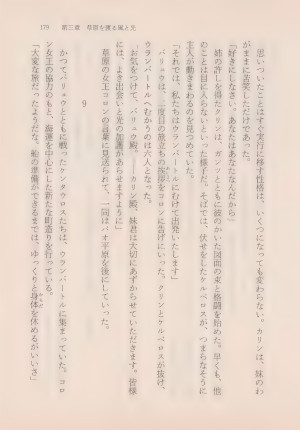 119　第三章　草原を渡る風と光
思いついたことはすぐ実行に移す性格は、いくつになっても変わらない。カリンは、妹のわ
がままに苦笑しただけであった。
「好きにしなさい。あなたはあなたなんだから」
姉の許しを得たクリンは、ガンツとともに彼のかいた図面の束と格闘を始めた。早くも、他
のことは目に入らないといった様子だ。そばでは、伏せをしたケルベロスが、つまらなそうに
主人が動きまわるのを見つめていた。
「それでは、私たちはウランバートルにむけて出発いたします」
バリュウは、二度目の旅立ちの挨拶をコロンに告げにいった。クリンとケルベロスが抜け、
ウランバートルへむかうのは六人となった。
「お気をつけて、バリュウ殿、カリン殿。妹君は大切にあずからせていただきます。皆様
に、よき出会いと光の加護があらせますように」
草原の女王コロンの言葉に見送られて、一同はパオ平原を後にしていった。
9
かつてバリュウとともに戦ったケンタウロスたちは、ウランバートルに集まっていた。コロ
ン女王の協力のもと、海運を中心にした新たな町造りを行っている。
「大変な旅だったようだな。船の準備ができるまでは、ゆっくりと身体を休めるがいいさ」